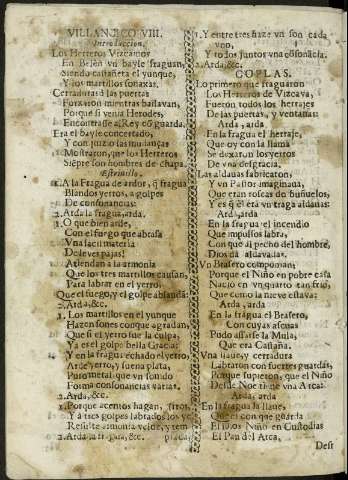 VILLANCICO VIII.
Introduccion.
Los Herreros Vizcainos
En Belèn vn bayle fraguan,
Siendo castañeta el yunque,
Y los martillos sonaxas.
Cerraduras à las puertas
Forxaron mientras bailavan,
Porque si venia Herodes,
Encontrasse al Rey cõ guarda.
Era el bayle concertado,
Y con juizio las mudanças
Mostraron, que los Herreros
Siẽpre son hombres de chapa.
Estrivillo.
1. A la Fragua de ardor, q̃ fragua
Blandos yerros, a golpes
De consonancias:
2. Arda la fragua, arda.
1. O que bien arde,
Con el fuego que abrasa
Vna facil materia
De leves pajas!
Atiendan a la armonia
Que los tres martillos causan,
Para labrar en el yerro,
Que el fuego, y el golpe ablanda.
2. Arda, &c.
1. Los martillos en el yunque
Hazen sones conque agradan,
Que si el yerro fue la culpa,
A esse golpe bella Gracia:
Y en la fragua echado el yerro,
Arde yerro, y suena plata,
Puro metal que vn sonido
Forma consonancias varias.
2. Arda, &c.
1. Porque acentos hagan,
Y à tres golpes labrados los
Resulte armonia veloz, y tem
2. Arda la fragua, &c. placa,
1. Y entre tres haze vn son cada
vno,
Y todos juntos vna cõsonãcia.
2. Arda, &c.
COPLAS.
Lo primero que fraguaron
Los Herreros de Vizcaya,
Fueron todos los herrajes
De las puertas, y ventanas:
Arda, arda
En la fragua el herraje,
Que oy con la llama
Se dexaron los yerros
De vna desgracia.
Las aldauas fabricaron,
Y vn Pastor imaginaua,
Que eran roscas de buñuelos,
Y es q̃ èl era vn traga aldauas:
Arda, arda
En la fragua el incendio
Que impulsos labra,
Con que al pecho del hombre,
Dios da aldavadas.
Vn Brasero componian,
Porque el Niño en pobre casa
Naciò en vn quarto tan frio,
Que como la nieve estava:
Arda, arda
En la fragua el Brasero,
Con cuyas ascuas
Pudo assarse la Mula,
Que era Castaña.
Vna llaue, y cerradura
Labraron con fuertes guardas,
Porque supieron, que el Niño
Desde Noe tiene vna Arca:
Arda, arda
En la fragua la llaue,
Que es con que guarda
El Dios Niño en Custodias
El Pan del Arca.
Desr